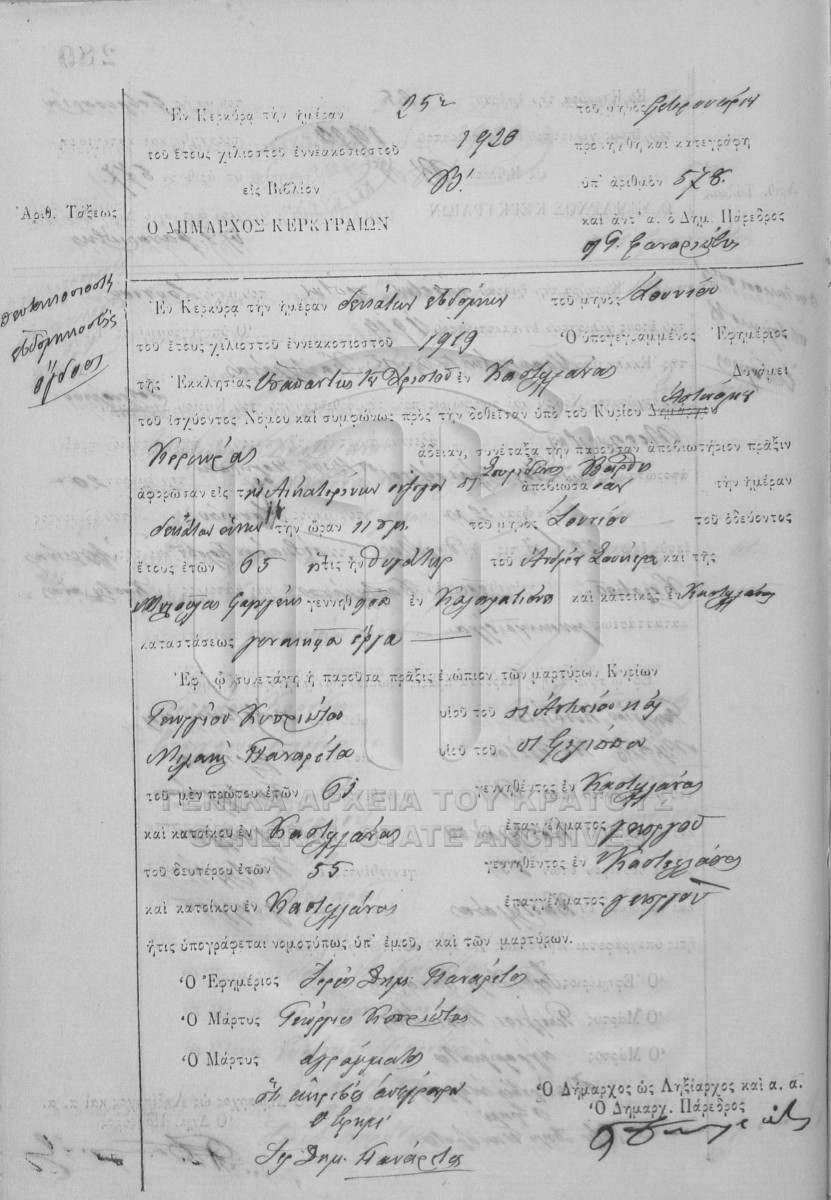 Ἐν Κερκύρᾳ τὴν ἡμέραν 25η τοῦ μηνὸς Φεβρουαρίου
τοῦ ἔτους χιλιοστοῦ ἐννεακοσιοστοῦ 1920 προσήχθη καὶ κατεγράφη
εἰς Βιβλίον Β! ὑπ' ἀριθμὸν 578.
Ἀριθ. Τάξεως
Ο ΔΗΜΑΡΧΟΣ ΚΕΡΚΥΡΑΙΩΝ καὶ ἀντ' α. ὁ Δημ. Πάρεδρος
πεντακοσιοστὴ
ἑβδομηκοστὴ
ὀγδόη
Ἐν Κερκύρᾳ τὴν ἡμέραν δεκάτην ἑβδόμην τοῦ μηνὸς Ἰουνίου
τοῦ ἔτους χιλιοστοῦ ἐννεακοσιοστοῦ 1919 Ὁ ὑπογεγραμμένος Ἐφημέριος
τῆς Ἐκκλησίας Ὑπαπαντῆς τοῦ Χριστοῦ ἐν Καστελλάνας Δυνάμει
τοῦ ἰσχύοντος Νόμου καὶ συμφώνως πρὸς τὴν δοθεῖσαν ὑπὸ τοῦ Κυρίου Δημάρχου Ἀστυνόμου
Κερκύρας ἄδειαν, συνέταξα τὴν παροῦσαν ἀποβιωτήριον πρᾶξιν
ἀφορῶσαν εἰς τὴν Αἰκατερίνην σύζυγον Σπυρίδωνος ἀποβιώσασαν τὴν ἡμέραν
δεκάτην τὴν ὥραν 11 πμ. τοῦ μηνὸς Ἰουνίου τοῦ ὁδεύοντος
ἔτους ἐτῶν 65 ἥτις ἦν θυγάτηρ τοῦ Ἀνδρέα καὶ τῆς
γεννηθεῖσα ἐν καὶ κάτοικος ἐν Καστελλάνας
καταστάσεως γυναικεῖα ἔργα
Ἐφ' ᾧ συνετάγη ἡ παροῦσα πρᾶξις ἐνώπιον τῶν μαρτύρων Κυρίων
Γεωργίου Κυπριώτου υἱοῦ τοῦ Ἀντωνίου καὶ
Μιχαὴλ Παναρέτου υἱοῦ τοῦ Φιλίππου
τοῦ μὲν πρώτου ἐτῶν γεννηθέντος ἐν Καστελλάνας
καὶ κατοίκου ἐν Καστελλάνας ἐπαγγέλματος γεωργοῦ
ΓΕΝΙΚΑ ΑΡΧΕΙΑ ΤΟΥ ΚΡΑΤΟΥΣ
GENERAL STATE ARCHIVES
τοῦ δευτέρου ἐτῶν 55 γεννηθέντος ἐν Καστελλάνας
καὶ κατοίκου ἐν Καστελλάνας ἐπαγγέλματος γεωργοῦ
ἥτις ὑπογράφεται νομοτύπως ὑπ' ἐμοῦ, καὶ τῶν μαρτύρων.
Ὁ Ἐφημέριος Ἱερεὺς Δημ. Πανάρετος
Ὁ Μάρτυς Γεώργιος Κυπριώτης
Ὁ Μάρτυς ἀγράμματος
Ὅτι ἀκριβὲς ἀντίγραφον
Ὁ Ἐφημ.
Ἱερ. Δημ. Πανάρετος
Ὁ Δήμαρχος ὡς Ληξίαρχος καὶ α. α.
Ὁ Δημαρχ. Πάρεδρος